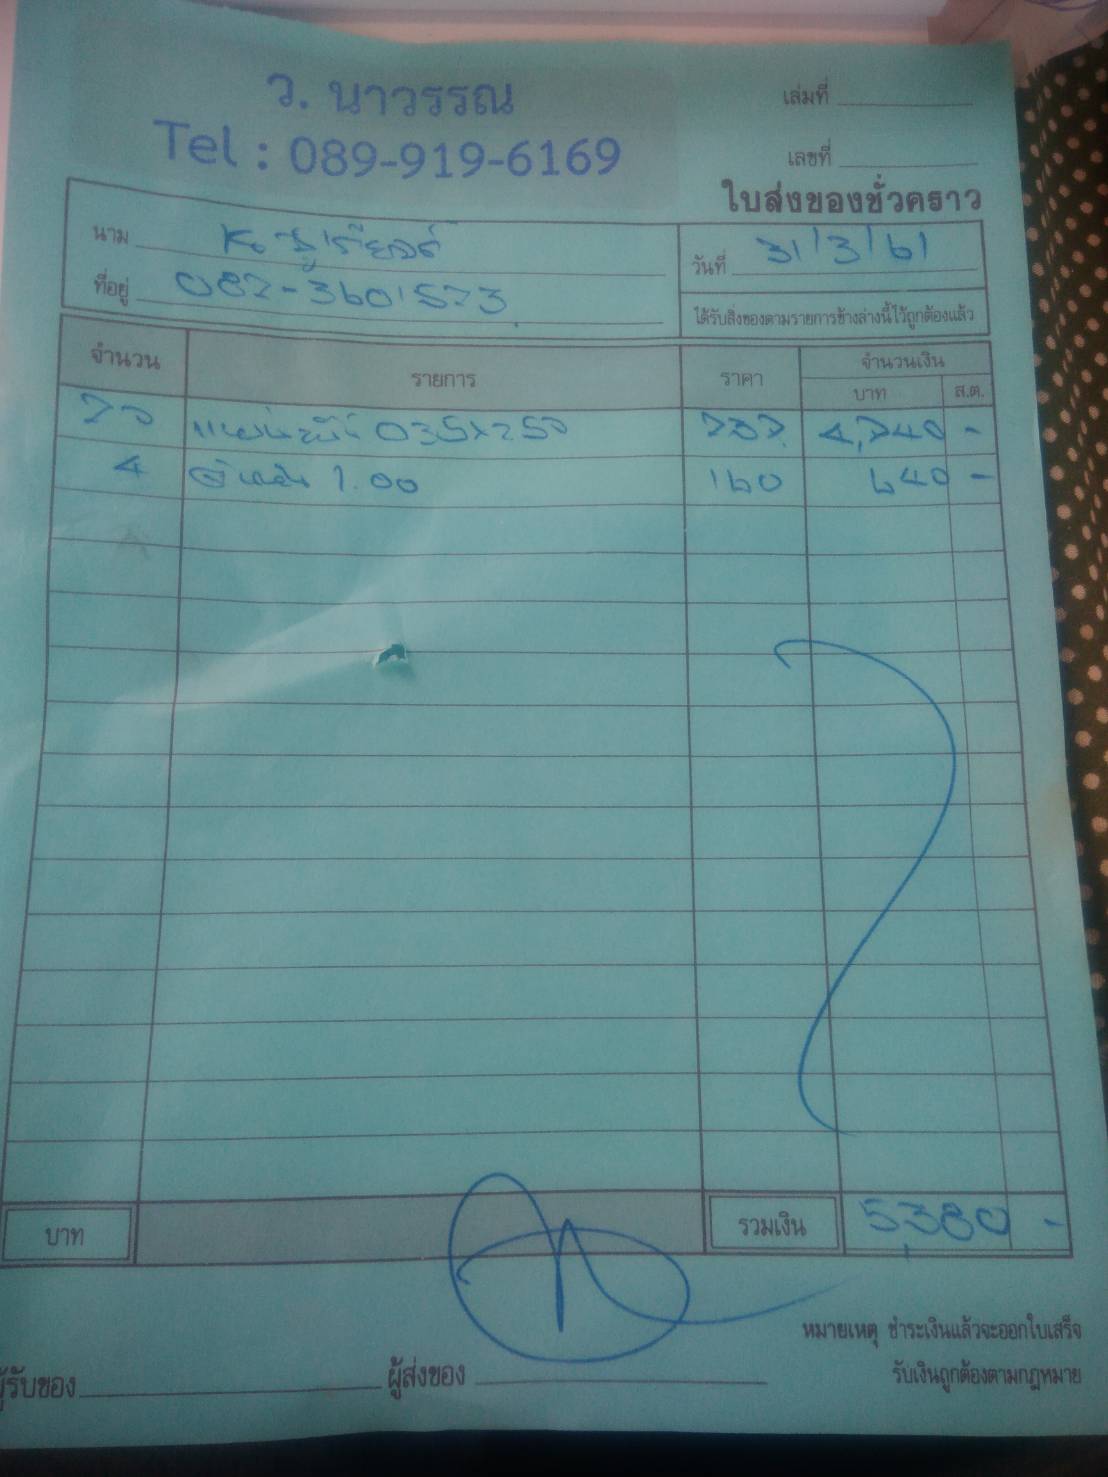 ว. นาวรรณ
Tel : 089-919-6169
เล่มที่
เลขที่
ใบส่งของชั่วคราว
นาม
วันที่ 31/3/61
ที่อยู่ 087-3601573
ได้รับสิ่งของตามรายการข้างล่างนี้ไว้ถูกต้องแล้ว
จำนวน รายการ ราคา จำนวนเงิน
บาท ส.ต.
20 แผ่นพื้น 035x250 237 4,740 -
4 1.00 160 640 -
บาท รวมเงิน 5,380 -
หมายเหตุ ชำระเงินแล้วจะออกใบเสร็จ
รับเงินถูกต้องตามกฎหมาย
ผู้รับของ ผู้ส่งของ